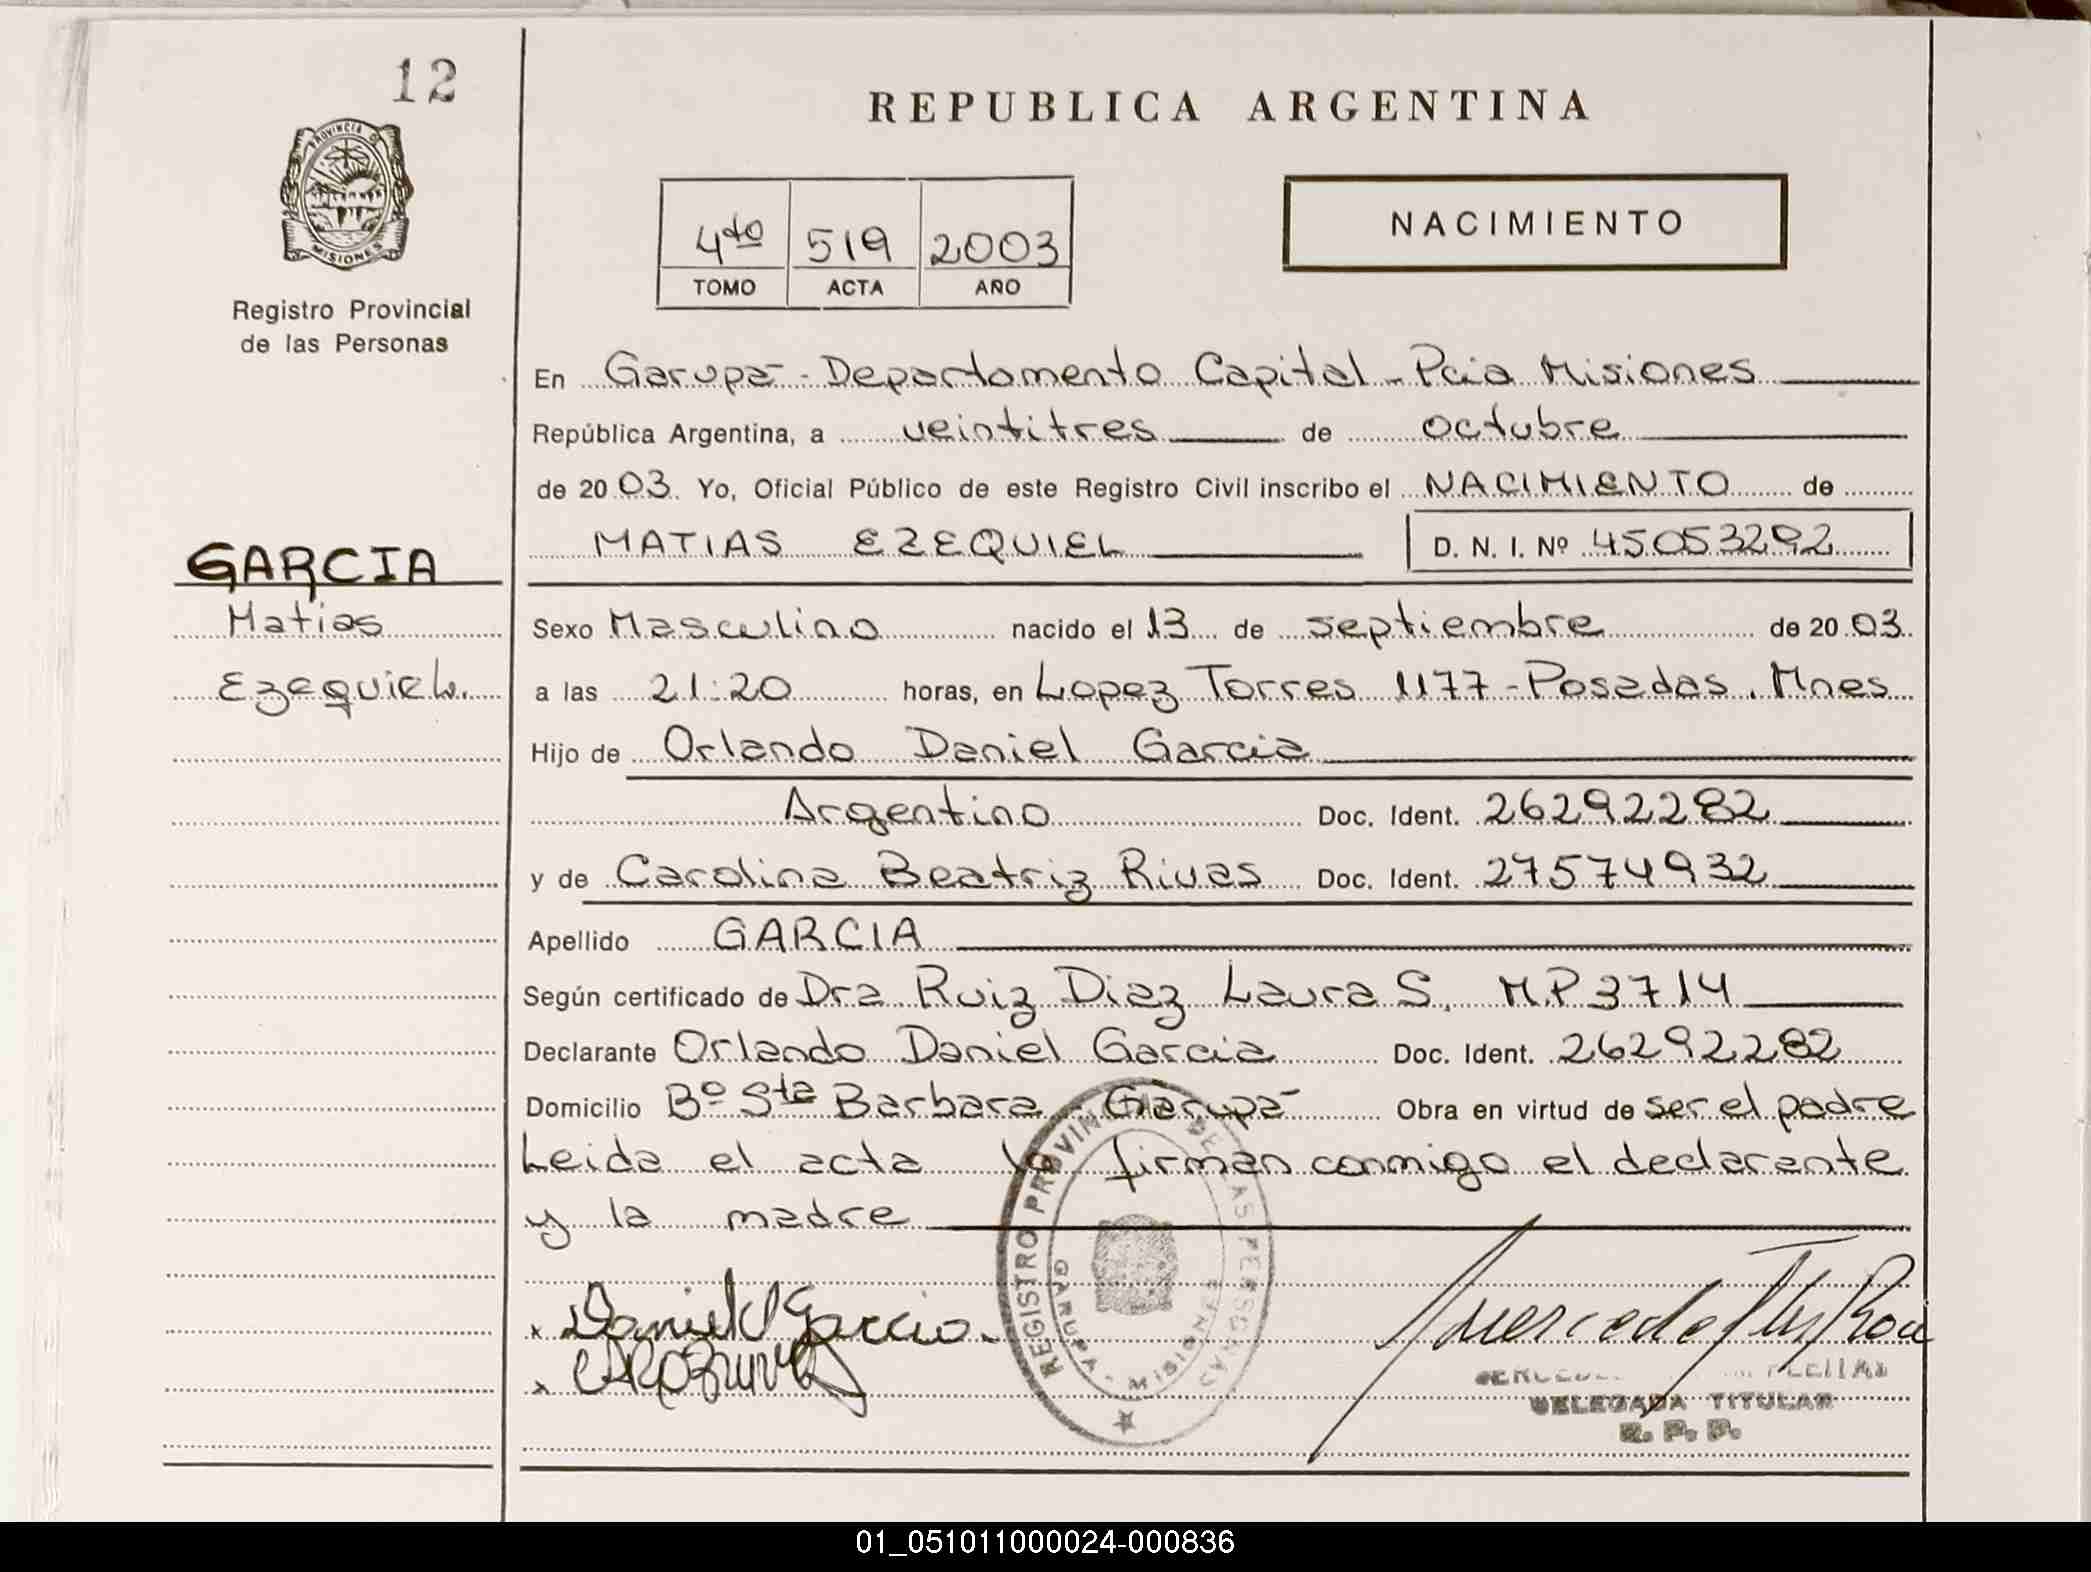 12
REPUBLICA ARGENTINA
PROVINCIA DE
MISIONES
Registro Provincial
de las Personas
4to 519 2003
TOMO ACTA AÑO
NACIMIENTO
En Garupá - Departamento Capital - Pcia Misiones
República Argentina, a veintitres de octubre
de 2003. Yo, Oficial Público de este Registro Civil inscribo el NACIMIENTO de
MATIAS EZEQUIEL D. N. I. Nº 45053292
GARCIA
Matias
Ezequiel.
Sexo Masculino nacido el 13 de septiembre de 2003.
a las 21:20 horas, en Lopez Torres 1177 - Posadas. Mnes
Hijo de Orlando Daniel Garcia
Argentino Doc. Ident. 26292282
y de Carolina Beatriz Rivas Doc. Ident. 27574932
Apellido GARCIA
Según certificado de Dra Ruiz Diaz Laura S. M.P 3714
Declarante Orlando Daniel Garcia Doc. Ident. 26292282
Domicilio Bº Sta Barbara - Garupá Obra en virtud de ser el padre
Leida el acta la firman conmigo el declarante
y la madre
REGISTRO PROVINCIAL DE LAS PERSONAS
GARUPA - MISIONES
x Daniel Garcia.
x
DELEGADA TITULAR
R. P. P.
01_051011000024-000836